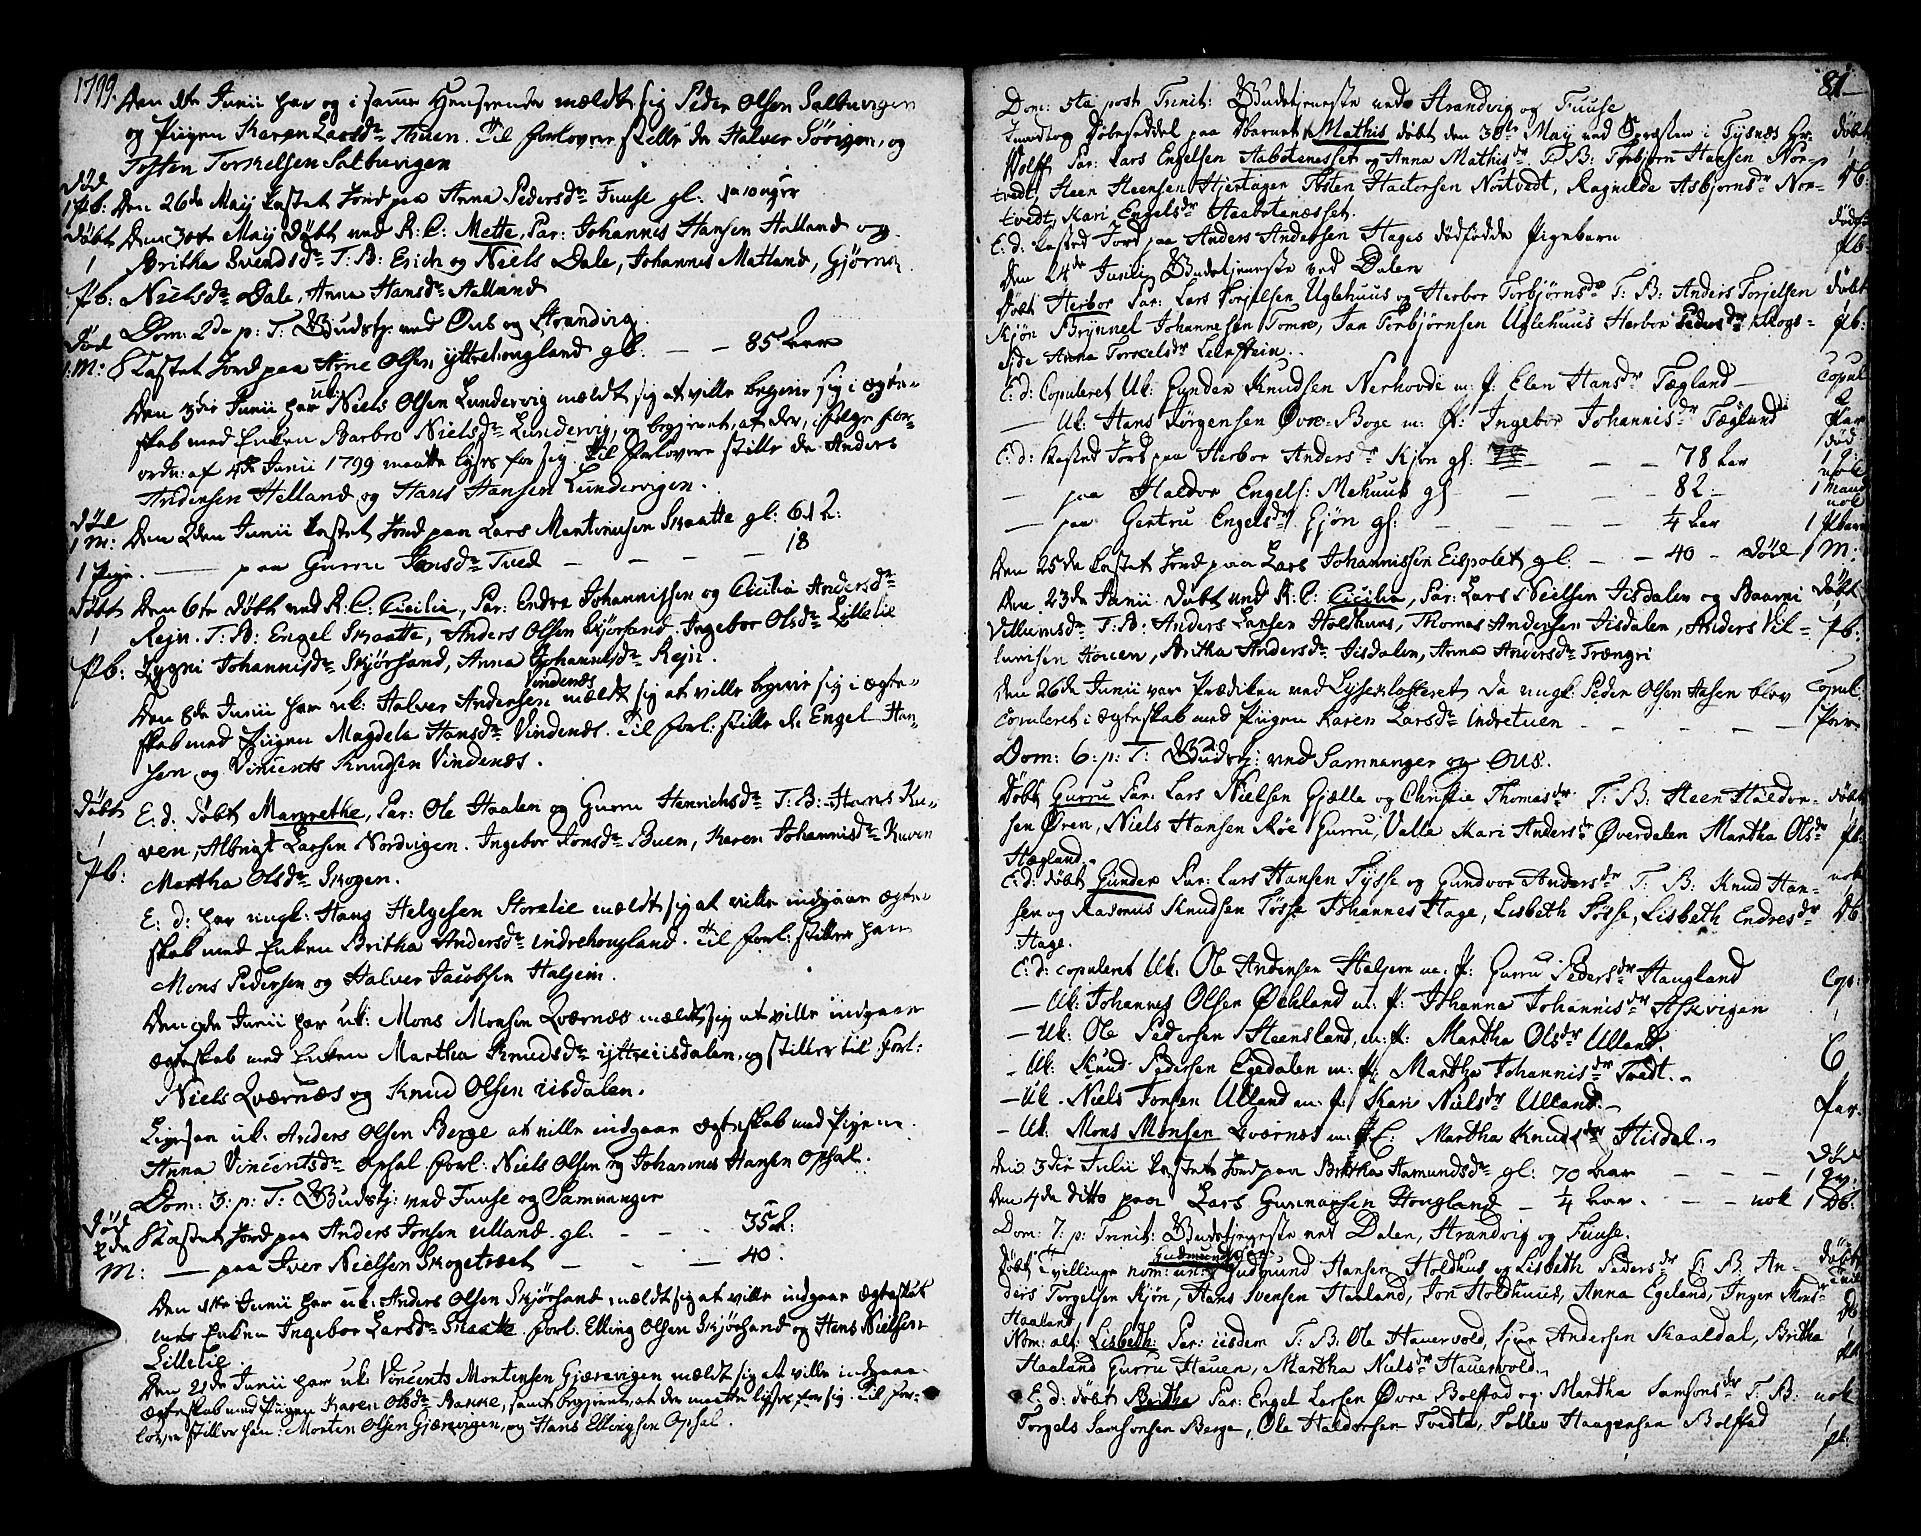 1799.
Den 1ste Junii har og i samme Henseende mældt sig Peder Olsen Salbuvigen
og Pigen Karen Larsdr Thuen. Til Forlovere stille de Halver Sørigen, og
Tosten Torkelsen Salbuvigen
død
1 Pb: Den 26de Maij kastet Jord paa Anna Pedersdr Fuuse gl: 14 Uger
døbt Den 30te Maij døbt ved K: C: Mette, Par: Johannis Hansen Hatland og
1 Britha Svendsdr T: B: Erich og Niels Dale, Johannis Matland, Gjøren
Pb: Nielsdr Dale, Anna Hansdr Aalland
Dom: 2da p: T: Gudstj: ved Ous og Strandvig
død
1 M: Kastet Jord paa Arne Olsen yttrehougland gl. — — 85 Aar
Den 3die Junii har uk: Niels Olsen Lundervig mældt sig at ville begive sig i ægte-
skab med Enken Barbro Nielsdr Lundervig, og begjerent, at der, ifølge For-
ordn: af 4de Junii 1799 maatte lyses for sig. Til Forlovere stille de Anders
Andersen Helland og Hans Hansen Lundervigen.
død
1 M: Den 2den Junii kastet Jord paa Lars Mortensen Skaatte gl: 61 A:
1 Pige. — paa Gurru Jonsdr Tved — — — 18
døbt Den 6te døbt ved K: C: Cicilia, Par: Endre Johannissen og Cicilia Andersdr
1 Rejn: T: B: Engel Skaatte, Anders Olsen Skjørsand, Ingebor Olsdr Lillelie
Pb: Zygni Johannisdr Skjørsand, Anna Johannisdr Rejn.
Den 8de Junii har uk: Halver Andersen Vindenæs mældt sig at ville begive sig i ægte-
skab med Pigen Magdela Hansdr Vindenæs. Til forl: stille de Engel Han-
sen og Vincents Knudsen Vindenæs.
døbt E: d: døbt Margrethe, Par: Ole Haalen og Gurru Henrichsdr T: B: Hans Ku-
1 ven, Albrigt Larsen Nordvigen. Ingebor Jonsdr Buen, Karen Johannisdr Kuven
Pb: Martha Olsdr Skogen.
E: d: har ungk: Hans Helgesen Storelie mældt sig at ville indgaae ægte-
skab med Enken Britha Andersdr indrehougland. Til forl: stiller han
Mons Pedersen og Halver Jacobsen Haljem.
Den 9de Junii har uk: Mons Monsen Qværnæs mældt sig at ville indgaae
ægteskab med Enken Martha Knudsdr yttreiisdalen, og stiller til forl:
Niels Qværnæs og Knud Olsen iisdalen.
Ligesaa uk: Anders Olsen Berge at ville indgaae ægteskab med Pigen
Anna Vincentsdr Opsal forl: Niels Olsen og Johannes Hansen Opsal.
Dom: 3: p: T: Gudstj: ved Fuuse og Samnanger
død
2de Kastet Jord paa Anders Jonsen ulland gl: — — 35 A:
M: — paa Iver Nielsen Skogetræet — — 40.
Den 11te Junii har uk: Anders Olsen Skjørsand mældt sig at ville indgaae ægteskab
med Enken Ingebor Larsdr Skaatte forl: Elling Olsen Skjørsand og Hans Nielsen
Lillelie.
Den 21de Junii har uk: Vincents Mortensen Gjærevigen mældt sig at ville indgaae
ægteskab med Pigen Karen Olsdr Bakke, samt begjerent, at der maatte lyses for sig. Til For-
lovere stiller han: Morten Olsen Gjærevigen, og Hans Ellingsen Opsal.
81
Dom: 5ta post Trinit: Gudstjeneste ved Strandvig og Fuuse
Indtog Døbeseddel paa Barnet Mathis døbt den 30te May ved Præsten i Tysnes Hr døbt
Wolff Par: Lars Engelsen Aabotenesset og Anna Mathisdr. T: B: Torbjørn Hansen Nor- 1
tvedt, Steen Steensen Hjertager Tosten Hactorsen Nortvedt, Ragnilde Asbjørnsdr Nor- Db:
tvedt, Kari Engelsdr Aabotenæsset.
E: d: kasted Jord paa Anders Andersen Hages dødfødde Pigebarn dødf: Pb:
Den 24de Junii Gudstjeneste ved Dalen
døbt Herbor Par: Lars Torjelsen Uglehuus og Herbor Torbjørnsdr T: B: Anders Torjelsen døbt
Kjøn Brynnel Johannesen Tomre, Jan Torbjørnsen Uglehuus Herbor Pedersdr Skogs- Pb:
side Anna Torkelsdr Leenstein.
E: d: Copuleret Uk: Gunder Knudsen Nerhovde m: P: Elen Hansdr Tægland — Copul
— Uk: Hans Jørgensen Øvre-Boge m: P: Ingebor Johannisdr Tægland 2 Par
E: d: kasted Jord paa Herbor Andersdr Kjøn gl: — — 78 Aar død 1 Q:
— paa Haldor Engels: Mehuus gl — — 82 — nok 1 Mand
— paa Gertru Engelsdr Gjøn gl: — — — 1/4 Aar nok 1 Pbarn
Den 25de kastet Jord paa Lars Johannissen Eispolet gl: — — 40 — død 1 M:
Den 23de Junii døbt ved K: C: Cicilia, Par: Lars Nielsen Iisdalen og Baarni døbt
Villumsdr T: B: Anders Larsen Holdhuus, Thomas Andersen Iisdalen, Anders Vil- Pb:
lumsen Houen, Britha Andersdr Iisdalen, Anna Andersdr Trængri
Den 26de Junii var Prædiken ved Lysekloster, da ungk: Peder Olsen Aasen blev Copul:
Copuleret i ægteskab med Pigen Karen Larsdr indretuen — — — — 1 Par.
Dom: 6: p: T: Gudstj: ved Samnanger og Ous.
døbt Gurru Par: Lars Nielsen Gjælle og Christie Thomasdr T: B: Steen Haldor- døbt
sen Øren, Niels Hansen Røe Gurru Valle Kari Andersdr Øverdalen Martha Olsdr Pb:
Hægland.
E: d: døbt Gunder Par: Lars Hansen Tysse og Gundvor Andersdr T: B: Knud Han- nok
sen og Rasmus Knudsen Tøsse Johannes Hage, Lisbeth Tøsse, Lisbeth Endresdr Db
Hage.
E: d: copuleret Uk: Ole Andersen Haljem m: P: Gurru Pedersdr Haugland Cop:
— Uk: Johannes Olsen Øchland m: P: Johanna Johannisdr Askvigen
— Uk: Ole Pedersen Steensland, m: P: Martha Olsdr Ulland.
— Uk: Knud Pedersen Egedalen m: P: Martha Johannisdr Tvedt. 6
— Uk. Niels Jonsen Ulland m: P: Kari Nielsdr Ulland. Par.
— Uk: Mons Monsen Qværnæs m: E: Martha Knudsdr Iisdal.
Den 3die Julii kastet Jord paa Britha Aamundsdr gl: 70 Aar — — død 1 Qv.
Den 4de ditto paa Lars Gunnarsen Hougland — 1/4 Aar. — — nok 1 Db:
Dom: 7: p: Trinit: Gudstjeneste ved Dalen, Strandvig og Fuuse.
døbt Tvillinge nom: un: Gudmund Par: Gudmund Hansen Holdhus og Lisbeth Pedersdr T: B: An- døbt
ders Torgelsen Kjøn, Hans Svensen Haaland, Jon Holdhuus, Anna Egeland, Inger Monsdr
Haaland Db
Nom: alt: Lisbeth: Par: iisdem T: B: Ole Hauervold, Siur Andersen Skaaldal, Britha
Haaland Gurru Hauen, Martha Nielsdr Hauervold. Pb
E: d: døbt Britha Par: Engel Larsen Øvre Bolstad og Martha Samsonsdr T: B: nok
Torgels Samsonsen Berge, Ole Haldorsen Tvedte, Tollev Haagensen Bolstad 1
Pb: